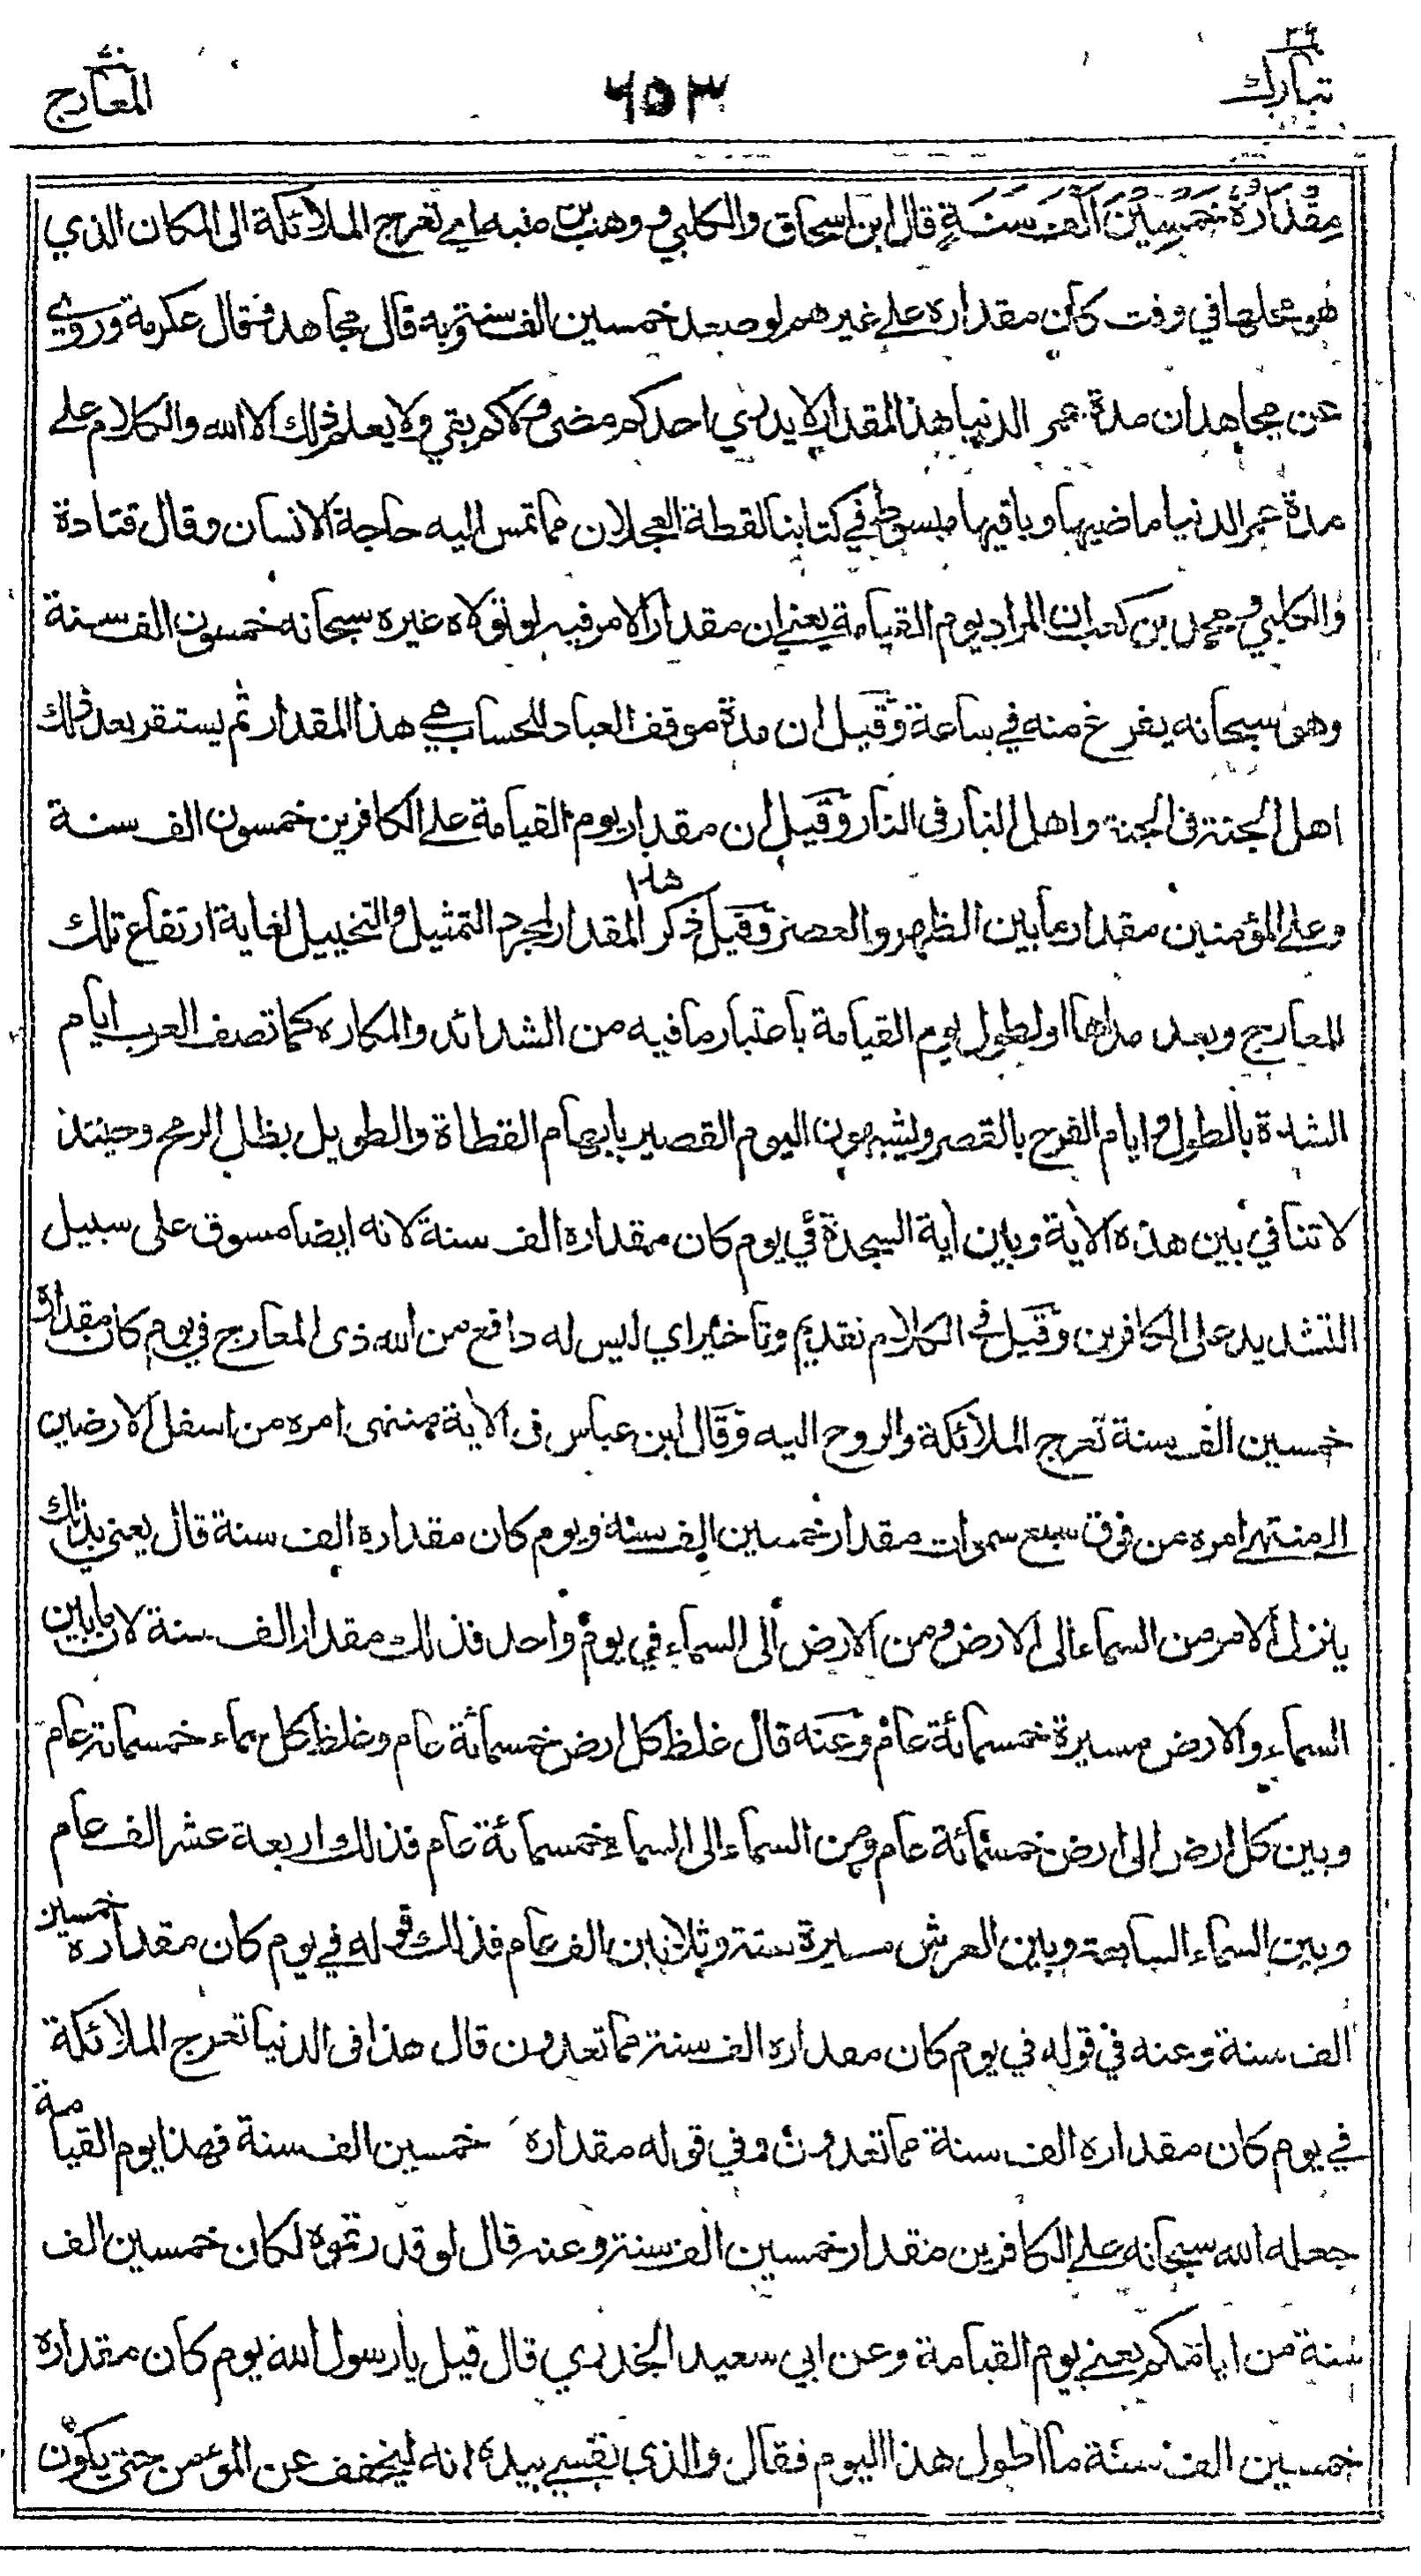 تبارك ٢٩
٦٥٣
المعارج ٧٠
مِقْدَارُهُ خَمْسِيْنَ اَلْفَ سَنَةٍ قال ابن اسحاق والكلبي ووهب بن منبه اي تعرج الملائكة الى المكان الذي
هو محلها في وقت كان مقداره على غيرهم لو صعد خمسين الف سنة وبه قال مجاهد وقال عكرمة وروي
عن مجاهد ان مدة عمر الدنيا هذا المقدار لا يدري احدكم مضى ولا كم بقي ولا يعلم ذلك الا الله والكلام على
مدة عمر الدنيا ماضيها وباقيها مبسوط في كتابنا لقطة العجلان مما تمس اليه حاجة الانسان وقال قتادة
والكلبي ومحمد بن كعب ان المراد يوم القيامة يعني ان مقدار الامر فيه لو تولاه غيره سبحانه خمسون الف سنة
وهو سبحانه يفرغ منه في ساعة وقيل ان مدة موقف العباد للحساب هي هذا المقدار ثم يستقر بعد ذلك
اهل الجنة في الجنة واهل النار في النار وقيل ان مقدار يوم القيامة على الكافرين خمسون الف سنة
وعلى المؤمنين مقدار ما بين الظهر والعصر وقيل ذكر هذا المقدار لمجرد التمثيل والتخييل لغاية ارتفاع تلك
المعارج وبعد مداها او لطول يوم القيامة باعتبار ما فيه من الشدائد والمكاره كما تصف العرب ايام
الشدة بالطول وايام الفرح بالقصر ويشبهون اليوم القصير بابهام القطاة والطويل بظل الرمح وحينئذ
لا تنافي بين هذه الاية وبين اية السجدة في يوم كان مقداره الف سنة لانه ايضا مسوق على سبيل
التشديد على الكافرين وقيل في الكلام تقديم وتأخير اي ليس له دافع من الله ذي المعارج في يوم كان مقداره
خمسين الف سنة تعرج الملائكة والروح اليه وقال ابن عباس في الاية منتهى امره من اسفل الارضين
الى منتهى امره من فوق سبع سموات مقدار خمسين الف سنة ويوم كان مقداره الف سنة قال يعني بذلك
ينزل الامر من السماء الى الارض ومن الارض الى السماء في يوم واحد فذلك مقدار الف سنة لان ما بين
السماء والارض مسيرة خمسمائة عام وعنه قال غلظ كل ارض خمسمائة عام وغلظ كل سماء خمسمائة عام
وبين كل ارض الى ارض خمسمائة عام ومن السماء الى السماء خمسمائة عام فذلك اربعة عشر الف عام
وبين السماء السابعة وبين العرش مسيرة ستة وثلاثين الف عام فذلك قوله في يوم كان مقداره خمسين
الف سنة وعنه في قوله في يوم كان مقداره الف سنة مما تعدون قال هذا في الدنيا تعرج الملائكة
في يوم كان مقداره الف سنة مما تعدون وفي قوله مقداره خمسين الف سنة فهذا يوم القيامة
جعله الله سبحانه على الكافرين مقدار خمسين الف سنة وعنه قال لو قدرتموه لكان خمسين الف
سنة من ايامكم يعني يوم القيامة وعن ابي سعيد الخدري قال قيل يا رسول الله يوم كان مقداره
خمسين الف سنة ما اطول هذا اليوم فقال والذي نفسي بيده انه ليخفف عن المؤمن حتى يكون